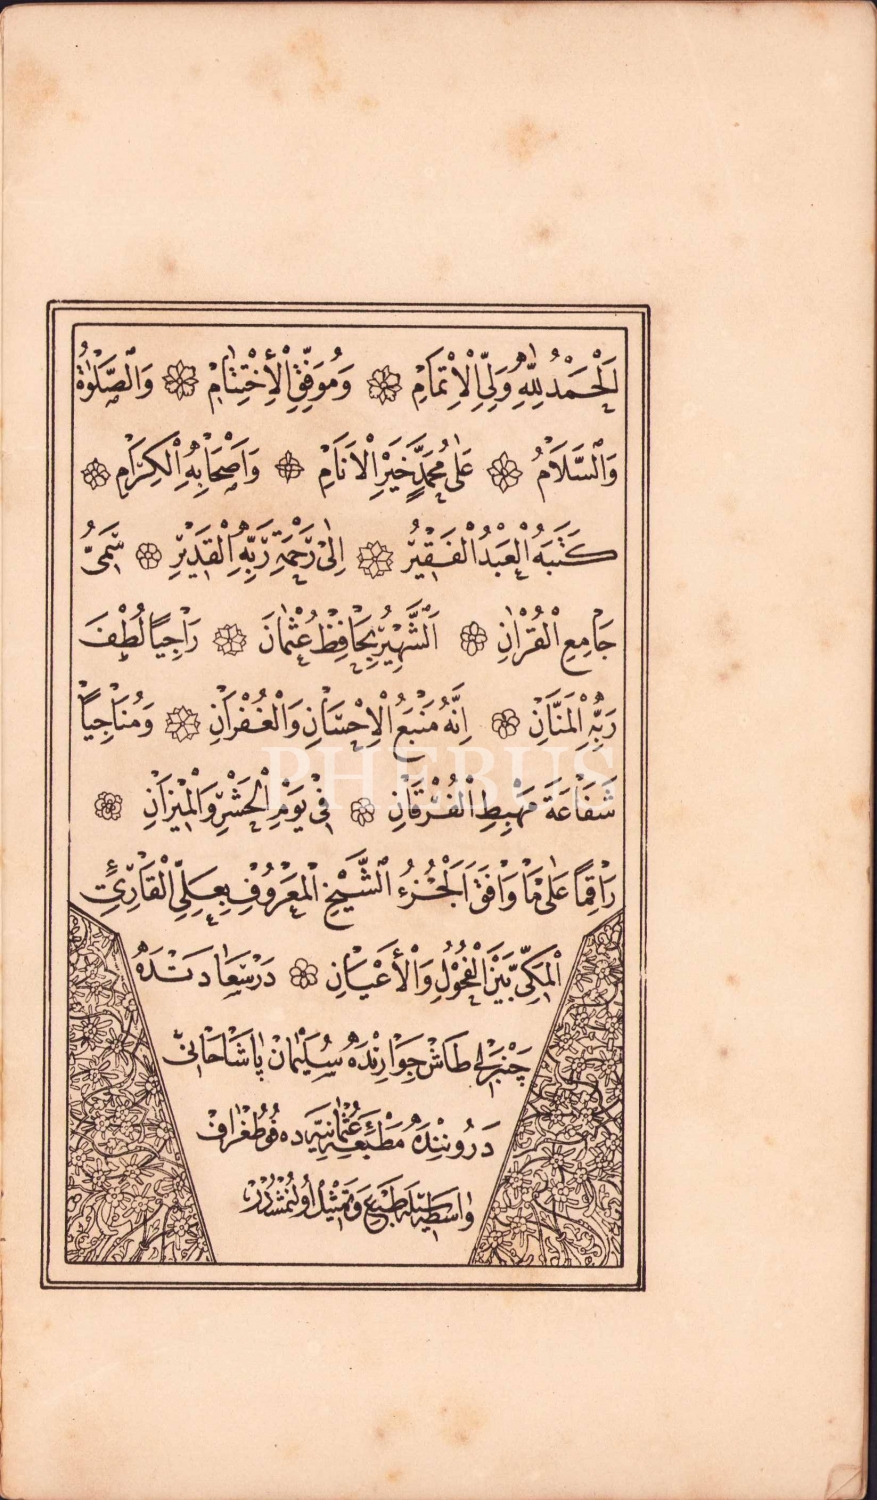 اَلْحَمْدُ لِلّٰهِ وَلِيِّ الْاِتْمَامِ ۞ وَمُوَفِّقِ الْأِخْتِتَامِ ۞ وَالصَّلٰوةُ
وَالسَّلَامُ ۞ عَلٰى مُحَمَّدٍ خَيْرِ الْاَنَامِ ۞ وَاَصْحَابِهِ الْكِرَامِ ۞
كَتَبَهُ الْعَبْدُ الْفَقِيْرُ ۞ اِلٰى رَحْمَةِ رَبِّهِ الْقَدِيْرِ ۞ سَمِيُّ
جَامِعِ الْقُرْاٰنِ ۞ اَلشَّهِيْرُ بِحَافِظْ عُثْمٰانَ ۞ رَاجِيًا لُطْفَ
رَبِّهِ الْمَنَّانِ ۞ اِنَّهُ مَنْبَعُ الْاِحْسَانِ وَالْغُفْرَانِ ۞ وَمُنَاجِيًا
شَفَاعَةَ مَهْبِطِ الْفُرْقَانِ ۞ فِيْ يَوْمِ الْحَشْرِ وَالْمِيْزَانِ ۞
رَاقِمًا عَلٰى مَا وَافَقَ اَلْجُزْءُ الشَّيْخِ الْمَعْرُوْفِ بِعَلِيِّ الْقَارِئِ
الْمَكِّيِّ بَيْنَ الْفُحُوْلِ وَالْأَعْيَانِ ۞ دَرْسَعَادَتْدَهْ
چَنْبَرْلِى طَاشْ جِوَارِنْدَهْ سُلَيْمٰانْ پَاشَا خَانِى
دَرُونِنْدَهْ مَطْبَعَهْ عُثْمٰانِيَّه دَه فُوطُغْرَافْ
وَاسِطَهسِيلَه طَبْعْ وَتَمْثِيلْ اُولُنْمِشْدُرْ
PHEBUS